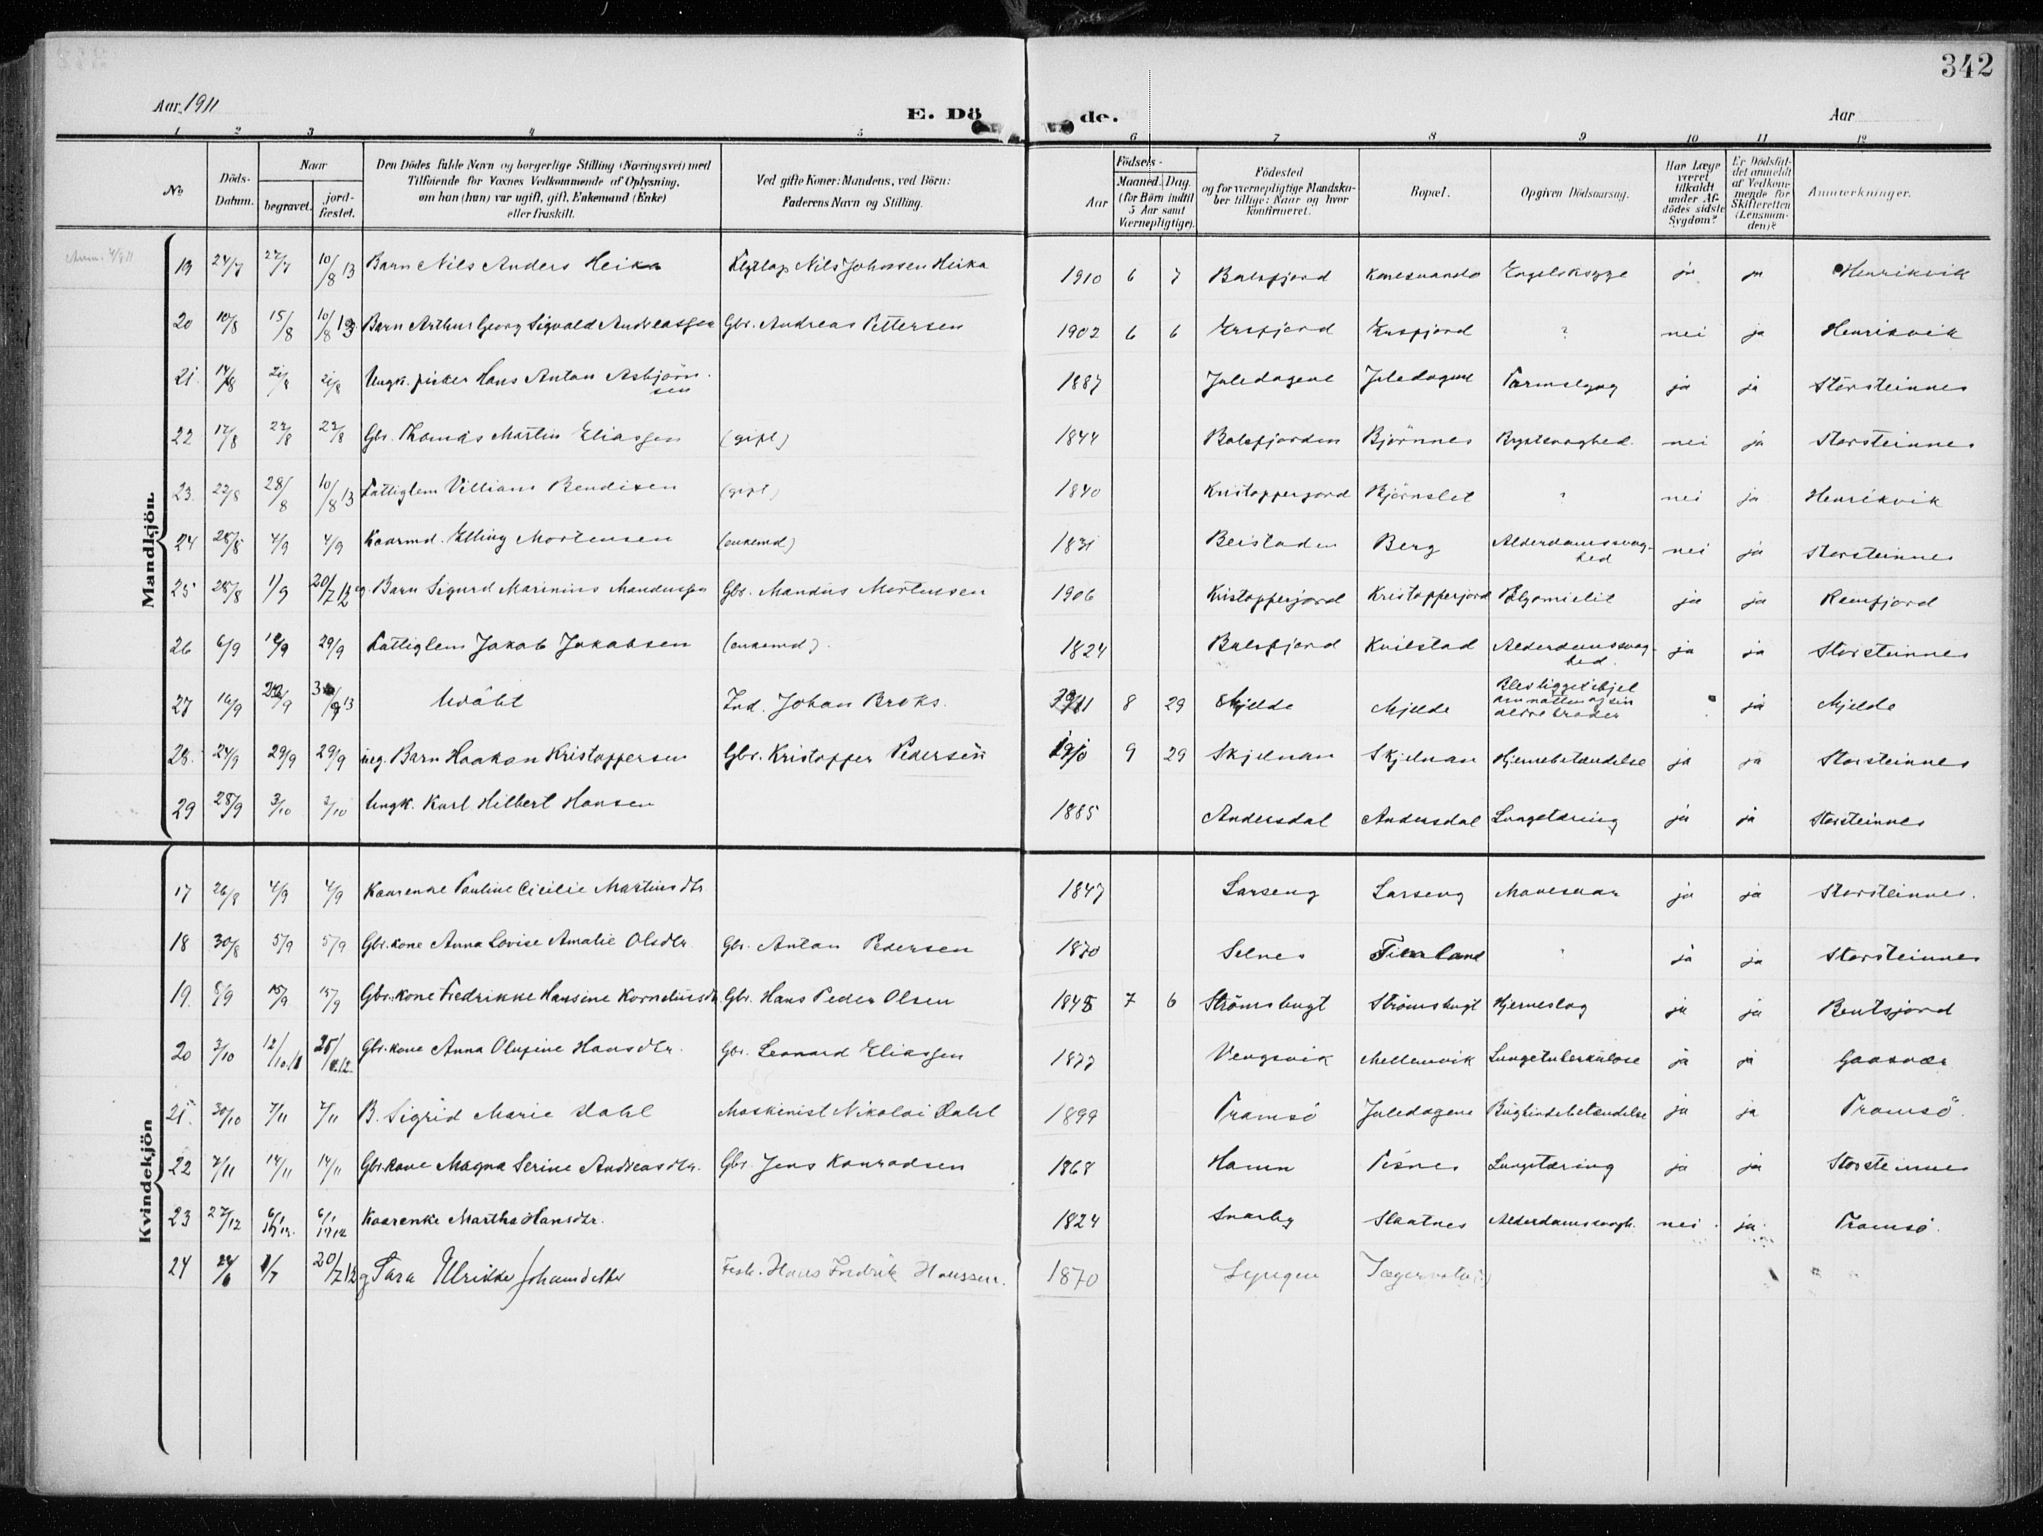 342
Aar 1911 E. Dö de. Aar
1 2 3 4 5 6 7 8 9 10 11 12
No
Döds-Datum.
Naar
begravet.
jord-fæstet.
Den Dödes fulde Navn og borgerlige Stilling (Næringsvei) med
Tilföiende for Voxnes Vedkommende af Oplysning,
om han (hun) var ugift, gift, Enkemand (Enke)
eller fraskilt.
Ved gifte Koner: Mandens, ved Börn:
Faderens Navn og Stilling.
Födsels-
Aar
Maaned. Dag.
(for Börn indtil
5 Aar samt
Værnepligtige).
Födested
og for værnepligtige Mandska-
ber tillige: Naar og hvor
konfirmeret.
Bopæl.
Opgiven Dödsaarsag.
Har Læge
været
tilkaldt
under Af-
dödes sidste
Sygdom?
Er Dödsfal-
det anmeldt
af Vedkom-
mende for
Skifteretten
(Lensman-
den)?
Anmærkninger.
Mandkjön.
19 24/7 27/7 10/8 13 Barn Nils Anders Heika Nils Johnsen Heika 1910 6 7 Balsfjord Engelsksyge ja ja Henrikvik
20 10/8 15/8 10/8 13 Barn Arthur Georg Sigvald Andreassen Gbr. Andreas Pettersen 1902 6 6 Ersfjord Ersfjord ? nei ja Henrikvik
21. 14/8 21/8 21/8 Ungk. fisker Hans Anton Asbjörn-
sen 1887 Juledagene Juledagene Tarmslyng ja ja Storsteinnes
22 17/8 22/8 22/8 Gbr. Thomas Martin Eliassen (gift) 1844 Balsfjorden Björnnes Brystsvaghed. nei ja Storsteinnes
23. 22/8 28/8 10/8 13 Fattiglem Villians Bendixen (gift) 1840 Kristofferjord Björnslet nei ja Henrikvik
24 25/8 4/9 4/9 Kaarmd. Elling Mortensen (enkemd) 1831 Beistaden Berg Alderdomssvag-
hed nei ja Storsteinnes
25 28/8 1/9 20/7 12 g. Barn Sigurd Marinius Mandussen Gbr. Mandus Mortensen 1906 Kristofferjord Kristofferjord Polyomielit ja ja Ramfjord
26 6/9 29/9 Fattiglem Jakob Jakobsen (enkemd). 1824 Balsfjord Kvilstad Alderdomssvag-
hed. ja ja Storsteinnes
27 16/9 Udöbt Ind. Johan Broks. 8 29 Mjelde Mjelde Blev ligget ihjel
om natten af sin
ældre broder ja Mjelde
28. 24/9 29/9 29/9 Barn Haakon Kristoffersen Gbr. Kristoffer Pedersen 1910 9 29 Skjelnan Skjelnan Hjernebetændelse ja ja Storsteinnes
29 28/9 3/10 3/10 Ungk. Karl Hilbert Hansen 1885 Andersdal Andersdal Lungetæring ja ja Storsteinnes
Kvindekjön
17 26/8 4/9 4/9 Kaarenke Pauline Cicilie Martinsdtr 1847 Larseng Larseng Mavesaar ja ja Storsteinnes.
18 30/8 5/9 5/9 Gbr.kone Anna Lovise Amalie Olsdtr Gbr. Anton Pedersen 1870 Selnes ja ja Storsteinnes
19. 8/9 15/9 15/9 Gbr.kone Fredrikke Hansine Korneliusdtr Gbr. Hans Peder Olsen 1848 7 6 Strömsbugt Strömsbugt Hjerneslag ja ja Bentsjord
20 3/10 Gbr.kone Anna Olufine Hansdtr. Gbr. Leonard Eliassen 1877 Vengsvik Mellemvik Lungetuberkulose ja ja Gaasvær
21. 30/10 7/11 7/11 B. Sigrid Marie Dahl Maskinist Nikolai Dahl 1899 Tromsö Juledagene Bughindebetændelse ja ja Tromsö.
22 7/11 14/11 14/11 Gbr.kone Magna Serine Andreasdtr. Gbr. Jens Konradsen 1868 Hamn Tisnes Lungetæring ja ja Storsteinnes
23 27/12 6/1 1912. 6/1 1912 Kaarenke Martha Hansdtr. 1824 Snarby Slaatnes Alderdomssvagh. nei ja. Tromsö.
24 1/7 20/7 12 g Sara Ulrikke Johansdatter Hans Fredrik Hanssen. 1870 Lyngen